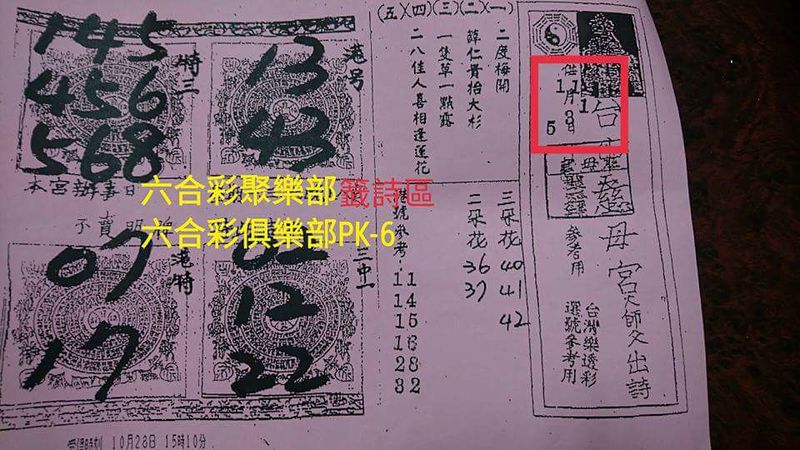 母宮天師父出詩
台灣樂透彩
選號參考用
參考用
月
日
11
1
3
5
(五)(四)(三)(二)(一)
二度梅開
薛仁貴抬大杉
一隻單一點露
二八佳人喜相逢蓮花
三朵花
40
41
42
二朵花
36
37
號參考
11
14
15
16
28
32
港号
13
43
特三
145
456
568
本宮辦事日
六合彩聚樂部籤詩區
六合彩俱樂部PK-6
三中一
02
12
22
港特
07
17
10月28日 15時10分